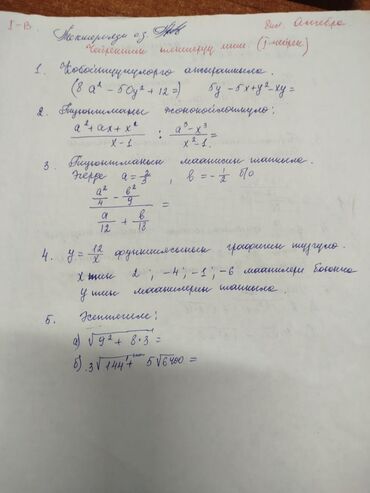 I-В
8кл. Алгебра
(I-чейрек)
1. Көбөйтүүчүлөргө ажыраткыла.
(8a² - 50y² + 12 =) 5y - 5x + y² - xy =
2. Туюнтманы жөнөкөйлөткүлө:
a² + ax + x² / x-1 : a³ - x³ / x² - 1 =
3. Туюнтманын маанисин тапкыла.
Эгерде a = 2/3, b = -1/2 б/о
a²/4 - b²/9
=
a/12 + b/18
4. y = 12/x функциясынын графигин түзгүлө.
x тин 2; -4; -1; -6 маанилери боюнча
y тин маанилерин тапкыла.
5. Эсептегиле:
а) √9² + 8·3 =
б) 3√144 + 5√6400 =